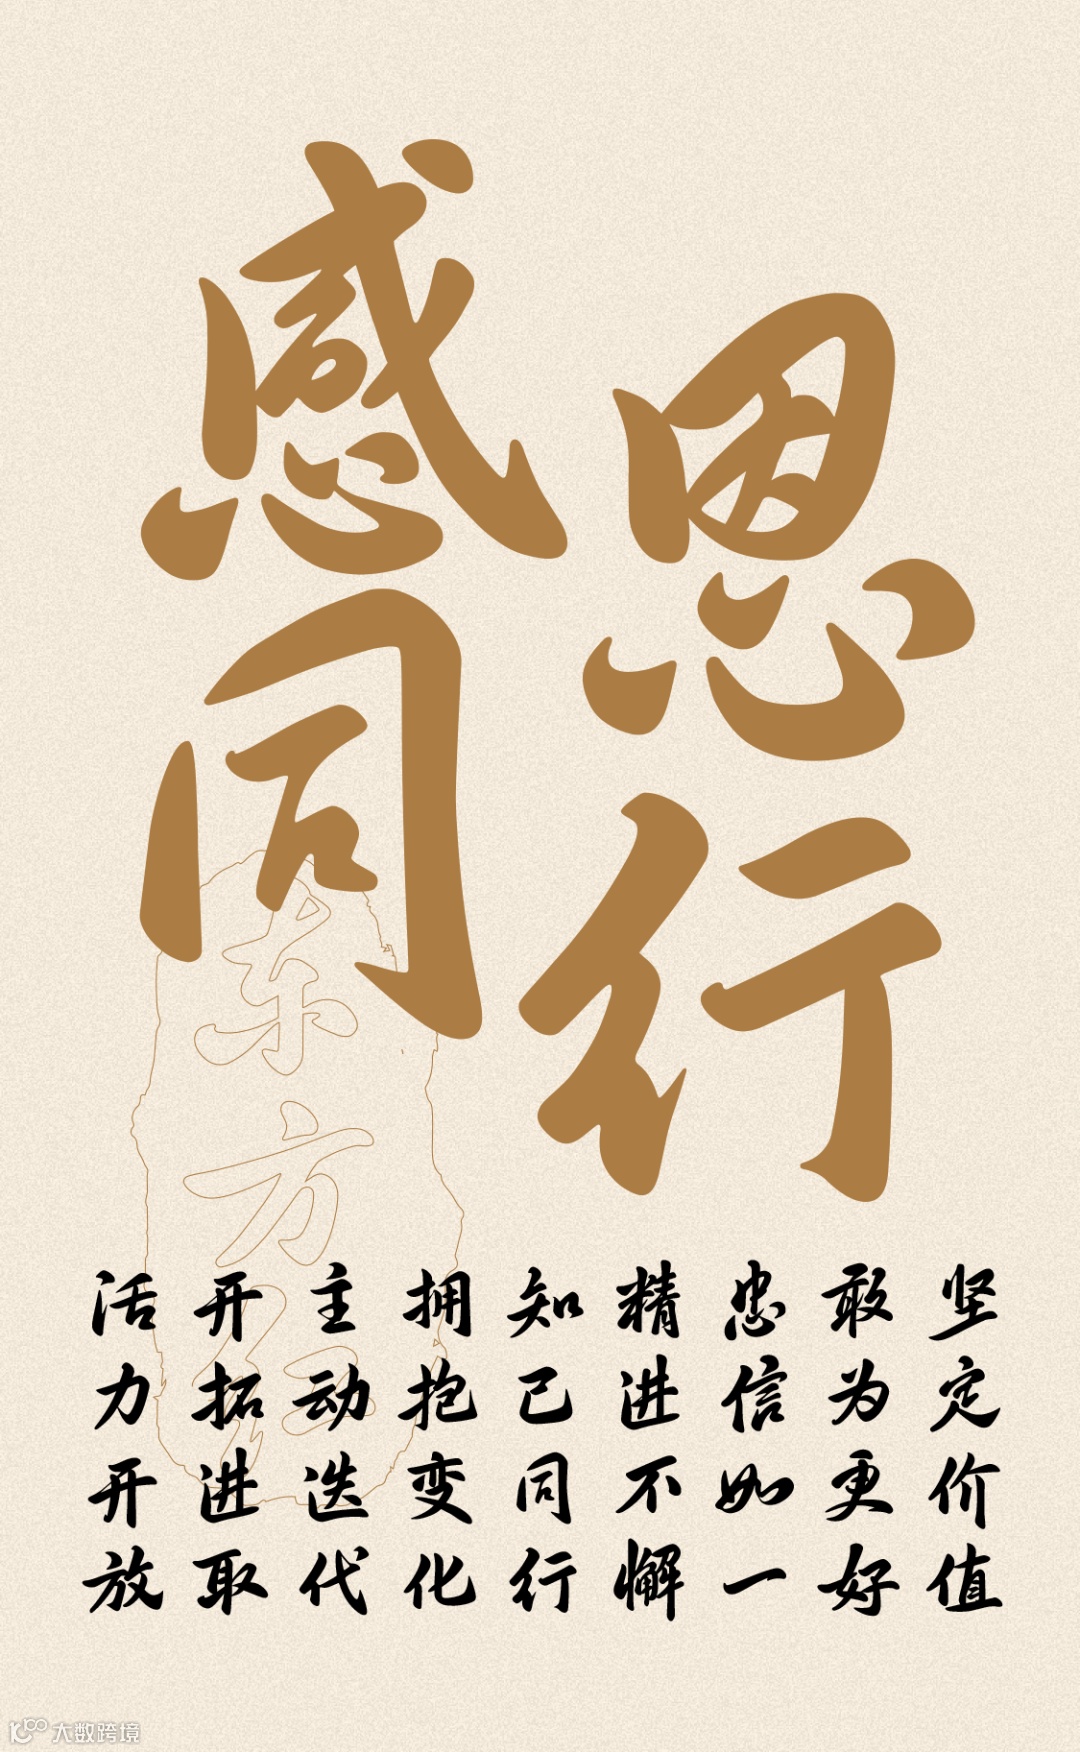 感恩
同行
东方红
坚定价值
敢为更好
忠信如一
精进不懈
知己同行
拥抱变化
主动迭代
开拓进取
活力开放
大数跨境